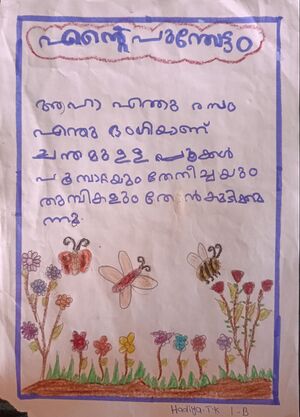 എന്റെ പൂന്തോട്ടം
ആഹാ എന്തു രസം
എന്തു ഭംഗിയാണ്
ചന്തമുള്ള പൂക്കൾ
പൂമ്പാറ്റയും തേനീച്ചയും
തുമ്പികളും തേൻകുടിക്കു
ന്നു.
Hadiya.T.K 1-B